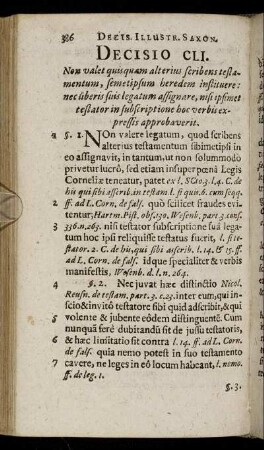 386 DECIS. ILLUSTR. SAXON.
DECISIO CLI.
Non valet quisquam alterius scribens testa-
mentum, semetipsum heredem instituere:
nec liberis suis legatum assignare, nisi ipsimet
testator in subscriptione hoc verbis ex-
pressis approbaverit.
1 §. 1. NOn valere legatum, quod scribens
alterius testamentum sibimetipsi in
eo assignavit, in tantum, ut non solummodo
privetur lucrô, sed etiam insuper pœnâ Legis
Corneliæ teneatur, patet ex l. SCto. 3. l. 4. C. de
his qui sibi ascrib. in testam l. si quis 6. cum seqq.
2 ff. ad L. Corn. de fals. quò scilicet fraudes evi-
tentur, Hartm. Pist. obs. 130. Wesenb. part 3. cons.
3 336. n. 263. nisi testator subscriptione suâ lega-
tum hoc ipsi reliquisse testatus fuerit, l. si te-
stator. 2. C. de his, qui sibi ascrib. l. 14. & 15. ff.
ad L. Corn. de fals. idque specialiter & verbis
manifestis, Wesenb. d. l. n. 264.
4 §. 2. Nec juvat hæc distinctio Nicol.
Reusn. de testam. part. 3. c. 23. inter eum, qui in-
scio & invito testatore sibi quid adscribit, & qui
5 volente & jubente eôdem distinguentẽ. Cum
nunquã ferè dubitandũ sit de jussu testatoris,
6 & hæc limitatio sit contra l. 14. ff. ad L. Corn.
de fals. quia nemo potest in suo testamento
7 cavere, ne leges in eô locum habeant, l. nemo.
ff. de leg. 1.
§. 3.